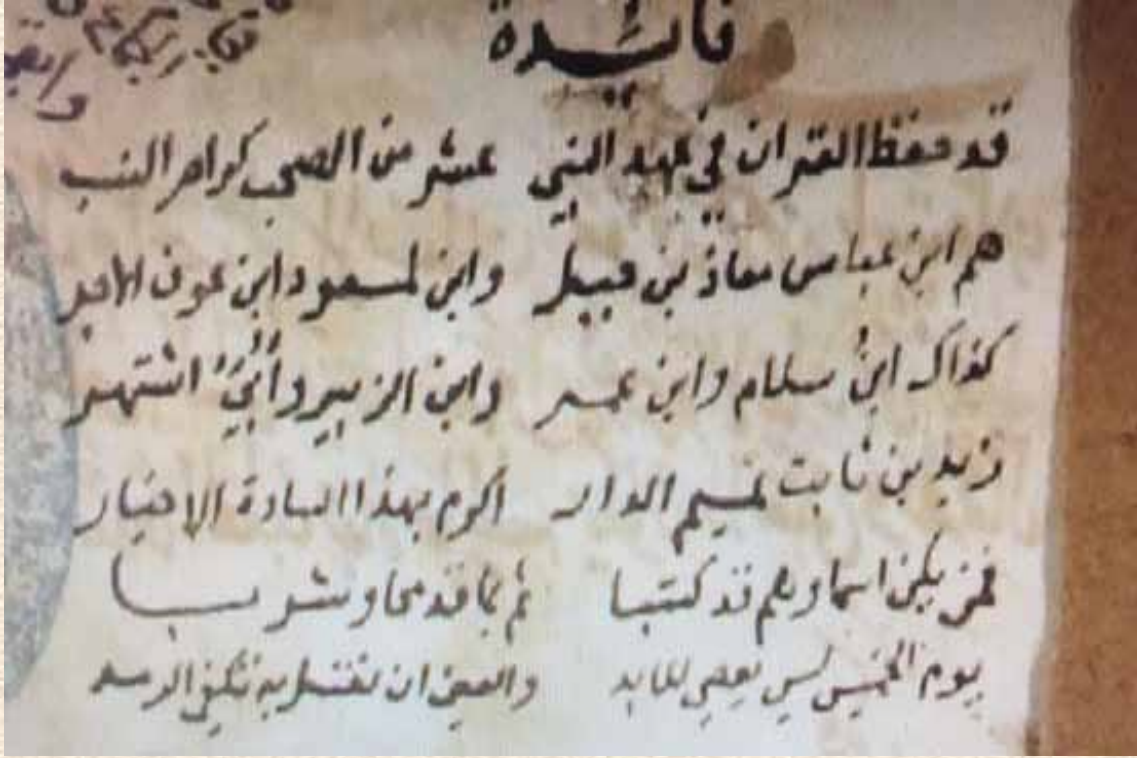 فائدة
قد حفظ القران في عهد النبي عشر من الصحب كرام النسب
هم ابن عباس معاذ بن جبل وابن لمسعود وابن عوف الاجل
كذاك ابن سلام وابن عمر وابن الزبير وأُبَيٌّ اشتهر
زيد بن ثابت تميم الدار اكرم بهذا السادة الاخيار
فمن يكن اسماوهم قد كتبا ثم بما قد محا وشربا
يوم الخميس ليس يعصي للابد والعين ان تغسل به تكفي الرمد